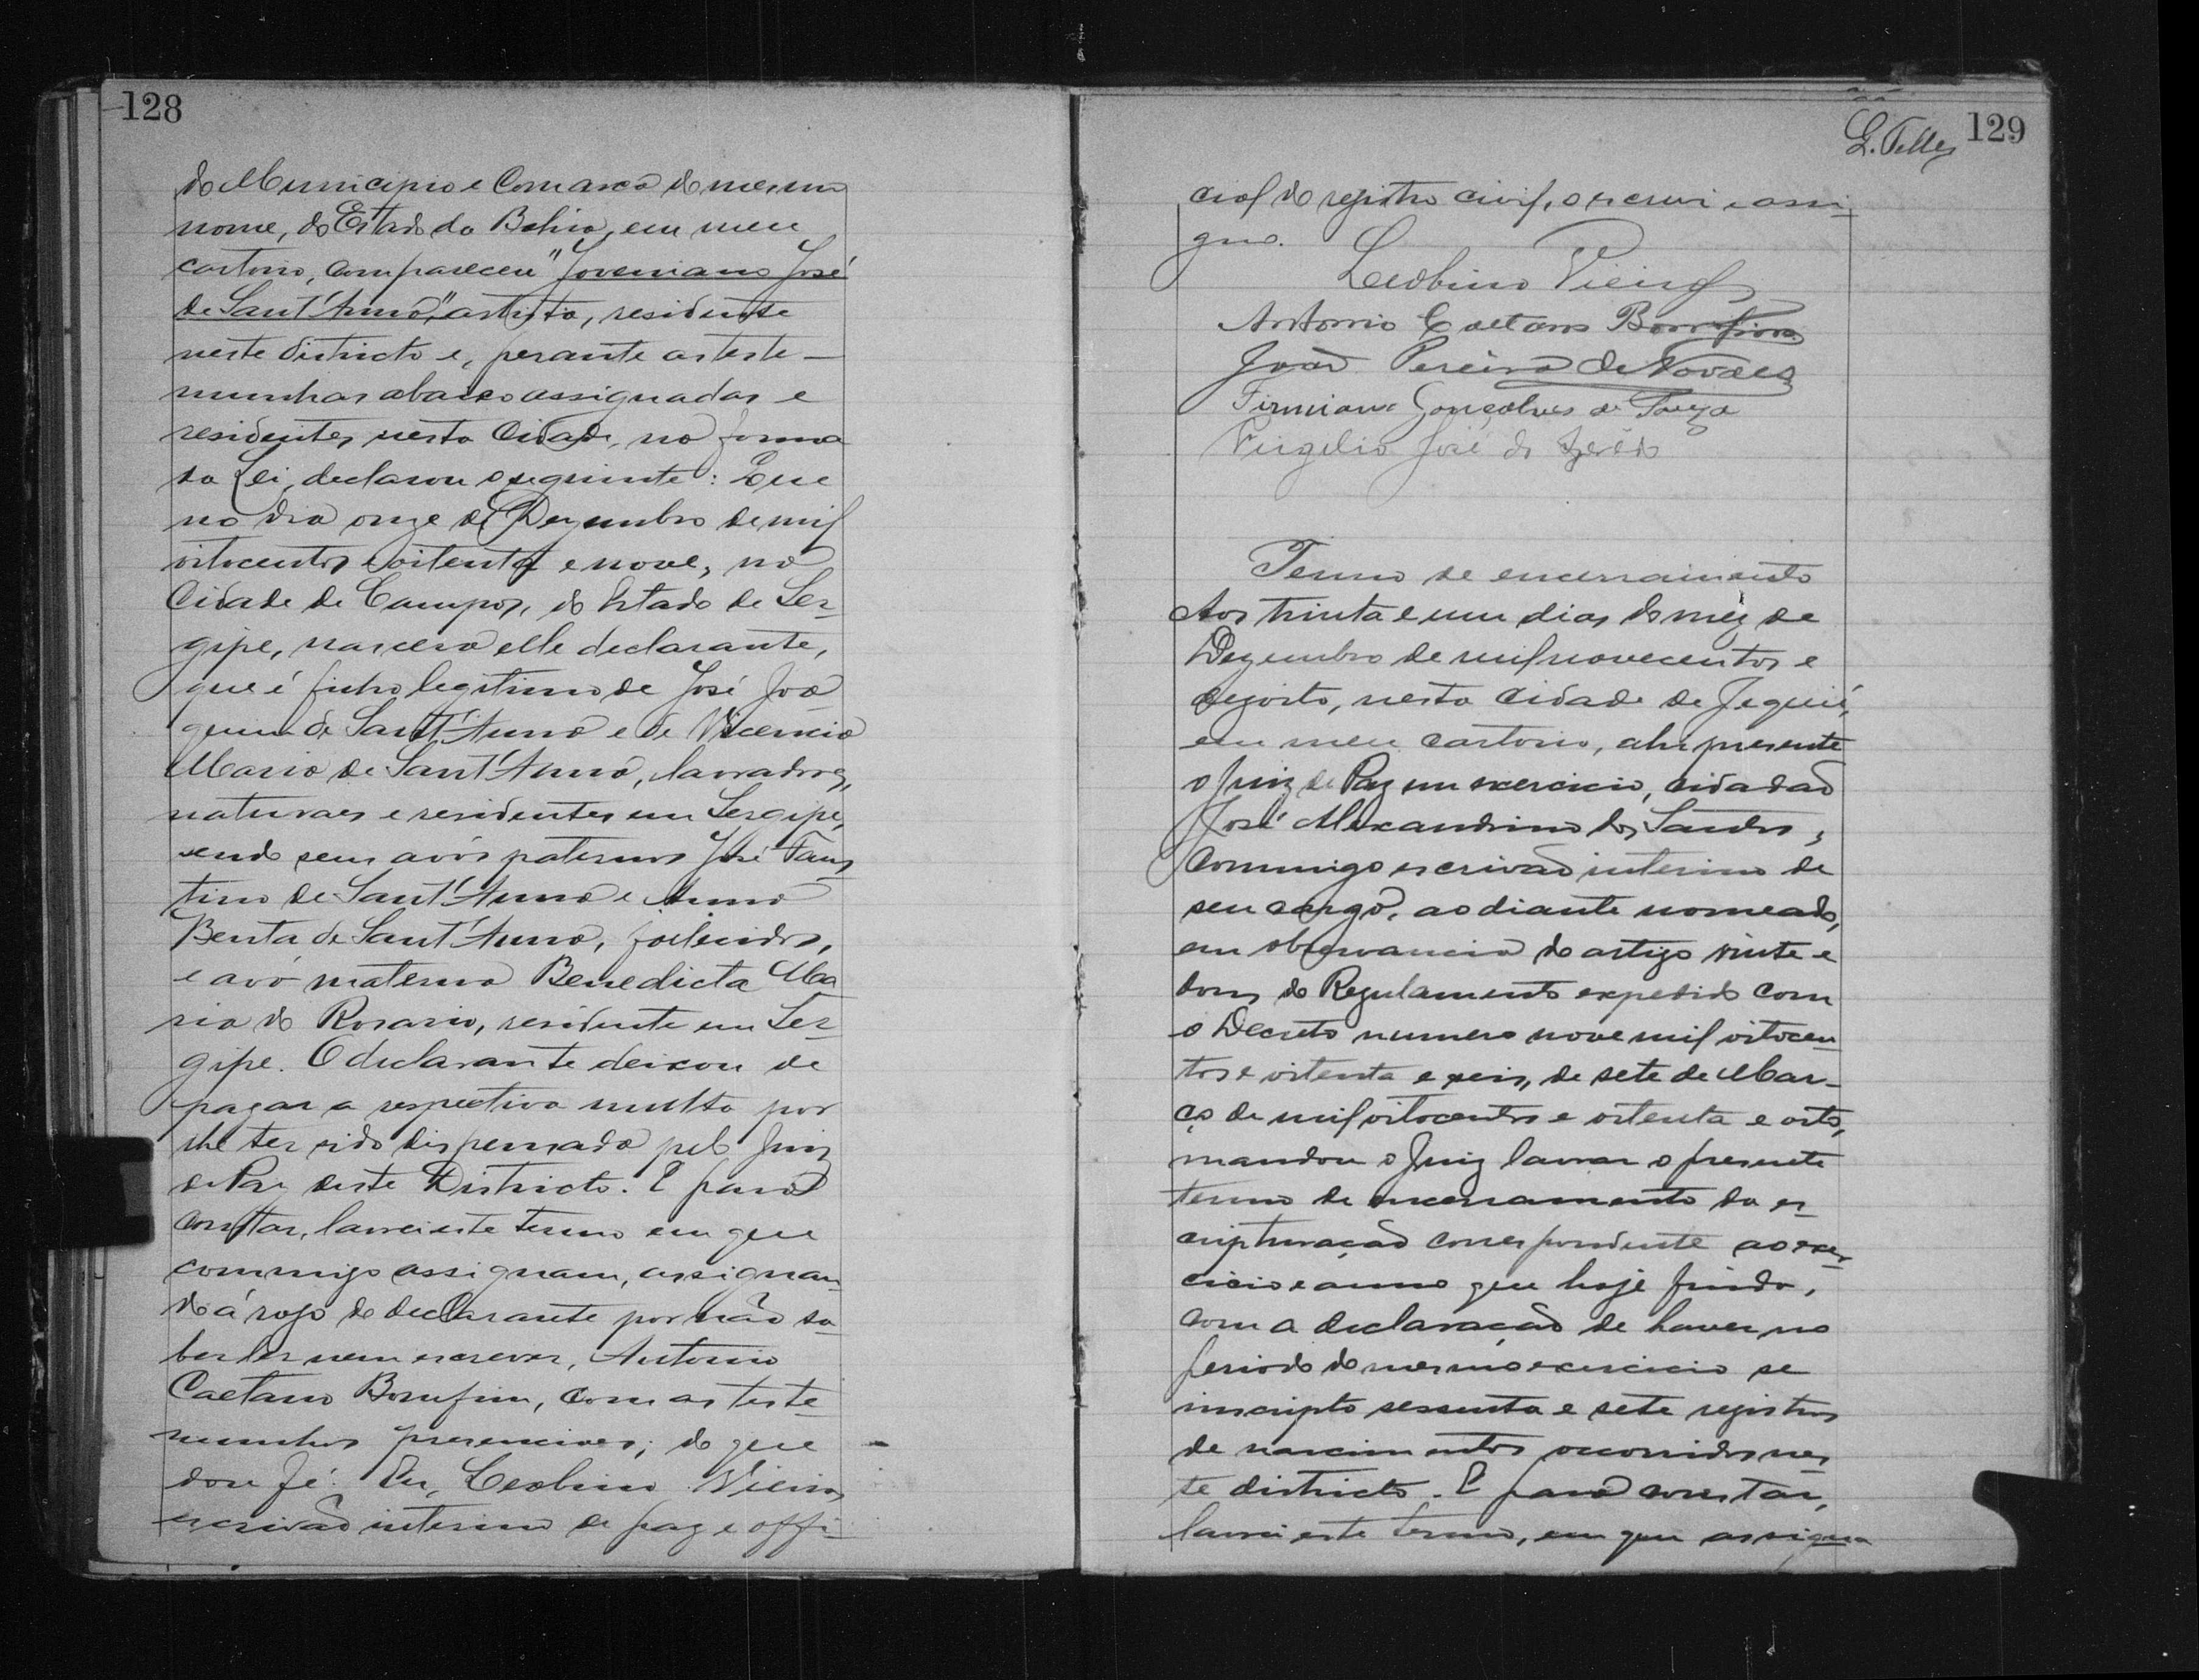 128
do Municipio e Comarca do mesmo
nome, do Estado da Bahia, em meu
cartorio, compareceu "Joveniano José
de Sant'Anna", artista, residente
neste districto e, perante as teste-
munhas abaixo assignadas e
residentes nesta Cidade, na forma
da Lei, declarou o seguinte: Que
no dia onze de Dezembro de mil
oitocentos e oitenta e nove, na
Cidade de Campos, do Estado de Ser-
gipe, nascera elle declarante,
que é filho legitimo de José Joa-
quim de Sant'Anna e de Vicencia
Maria de Sant'Anna, lavradores,
naturaes e residentes em Sergipe,
sendo seus avós paternos José Faus
tino de Sant'Anna e Anna
Benta de Sant'Anna, fallecidos,
e avó materna Benedicta Ma
ria do Rosario, residente em Ser-
gipe. O declarante deixou de
pagar a respectiva multa por
lhe ter sido dispensada pelo Juiz
de Paz deste Districto. E para
constar, lavrei este termo em que
commigo assignam, assignan-
do á rogo do declarante por não sa-
ber ler nem escrever, Antonio
Caetano Bomfim, com as teste-
munhas presenciaes; do que
dou fé. Eu, Leobino Vieira,
escrivão interino de paz e offi-
L. Telles
129
cial do registro civil, o escrevi e assi-
gno.
Leobino Vieira
Antonio Caetano Bomfim
João Pereira de Novaes
Firmiano Gonçalves de Souza
Virgilio José de
Termo de encerramento
Aos trinta e um dias do mez de
Dezembro de mil novecentos e
dezoito, nesta cidade de Jequié,
em meu cartorio, ahi presente
o Juiz de Paz em exercicio, cidadão
José Alexandrino dos Santos,
commigo escrivão interino de
seu cargo, ao diante nomeado,
em observancia do artigo vinte e
dous do Regulamento expedido com
o Decreto numero nove mil oitocen-
tos e oitenta e seis, de sete de Mar-
ço de mil oitocentos e oitenta e oito,
mandou o Juiz lavrar o presente
termo de encerramento da es-
cripturação correspondente ao exer-
cicio e anno que hoje finda,
com a declaração de haver no
periodo do mesmo exercicio se
inscripto sessenta e sete registros
de nascimentos occorridos nes-
te districto. E para constar,
lavrei este termo, em que assigna